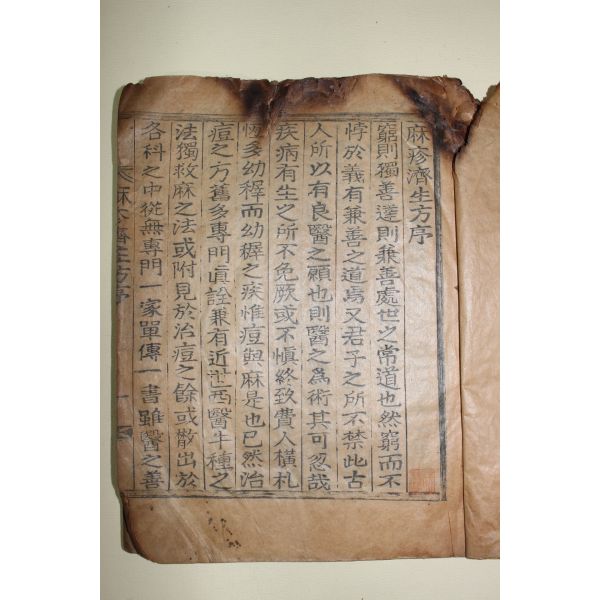 麻疹濟生方序
窮則獨善達則兼善處世之常道也然窮而不
悖於義有兼善之道焉又君子之所不禁此古
人所以有良醫之願也則醫之為術其可忽哉
疾病有生之所不免厥或不愼終致費人橫札
恆多幼稺而幼稺之疾惟痘與麻是也已然治
痘之方舊多專門眞詮兼有近世西醫牛種之
法獨救麻之法或附見於治痘之餘或散出於
各科之中從無專門一家單傳一書雖醫之善
麻 濟生方序
一